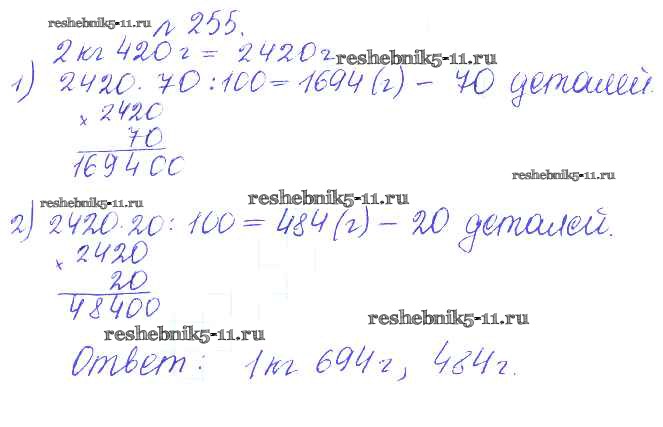 reshebnik5-11.ru
№ 255.
2 кг 420 г = 2420 г
reshebnik5-11.ru
1) 2420 · 70 : 100 = 1694 (г) – 70 деталей.
× 2420
70
169400
reshebnik5-11.ru
reshebnik5-11.ru
reshebnik5-11.ru
2) 2420 · 20 : 100 = 484 (г) – 20 деталей.
× 2420
20
48400
reshebnik5-11.ru
reshebnik5-11.ru
Ответ: 1 кг 694 г, 484 г.